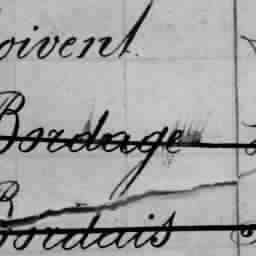 oivent.
Bordage
Bordais